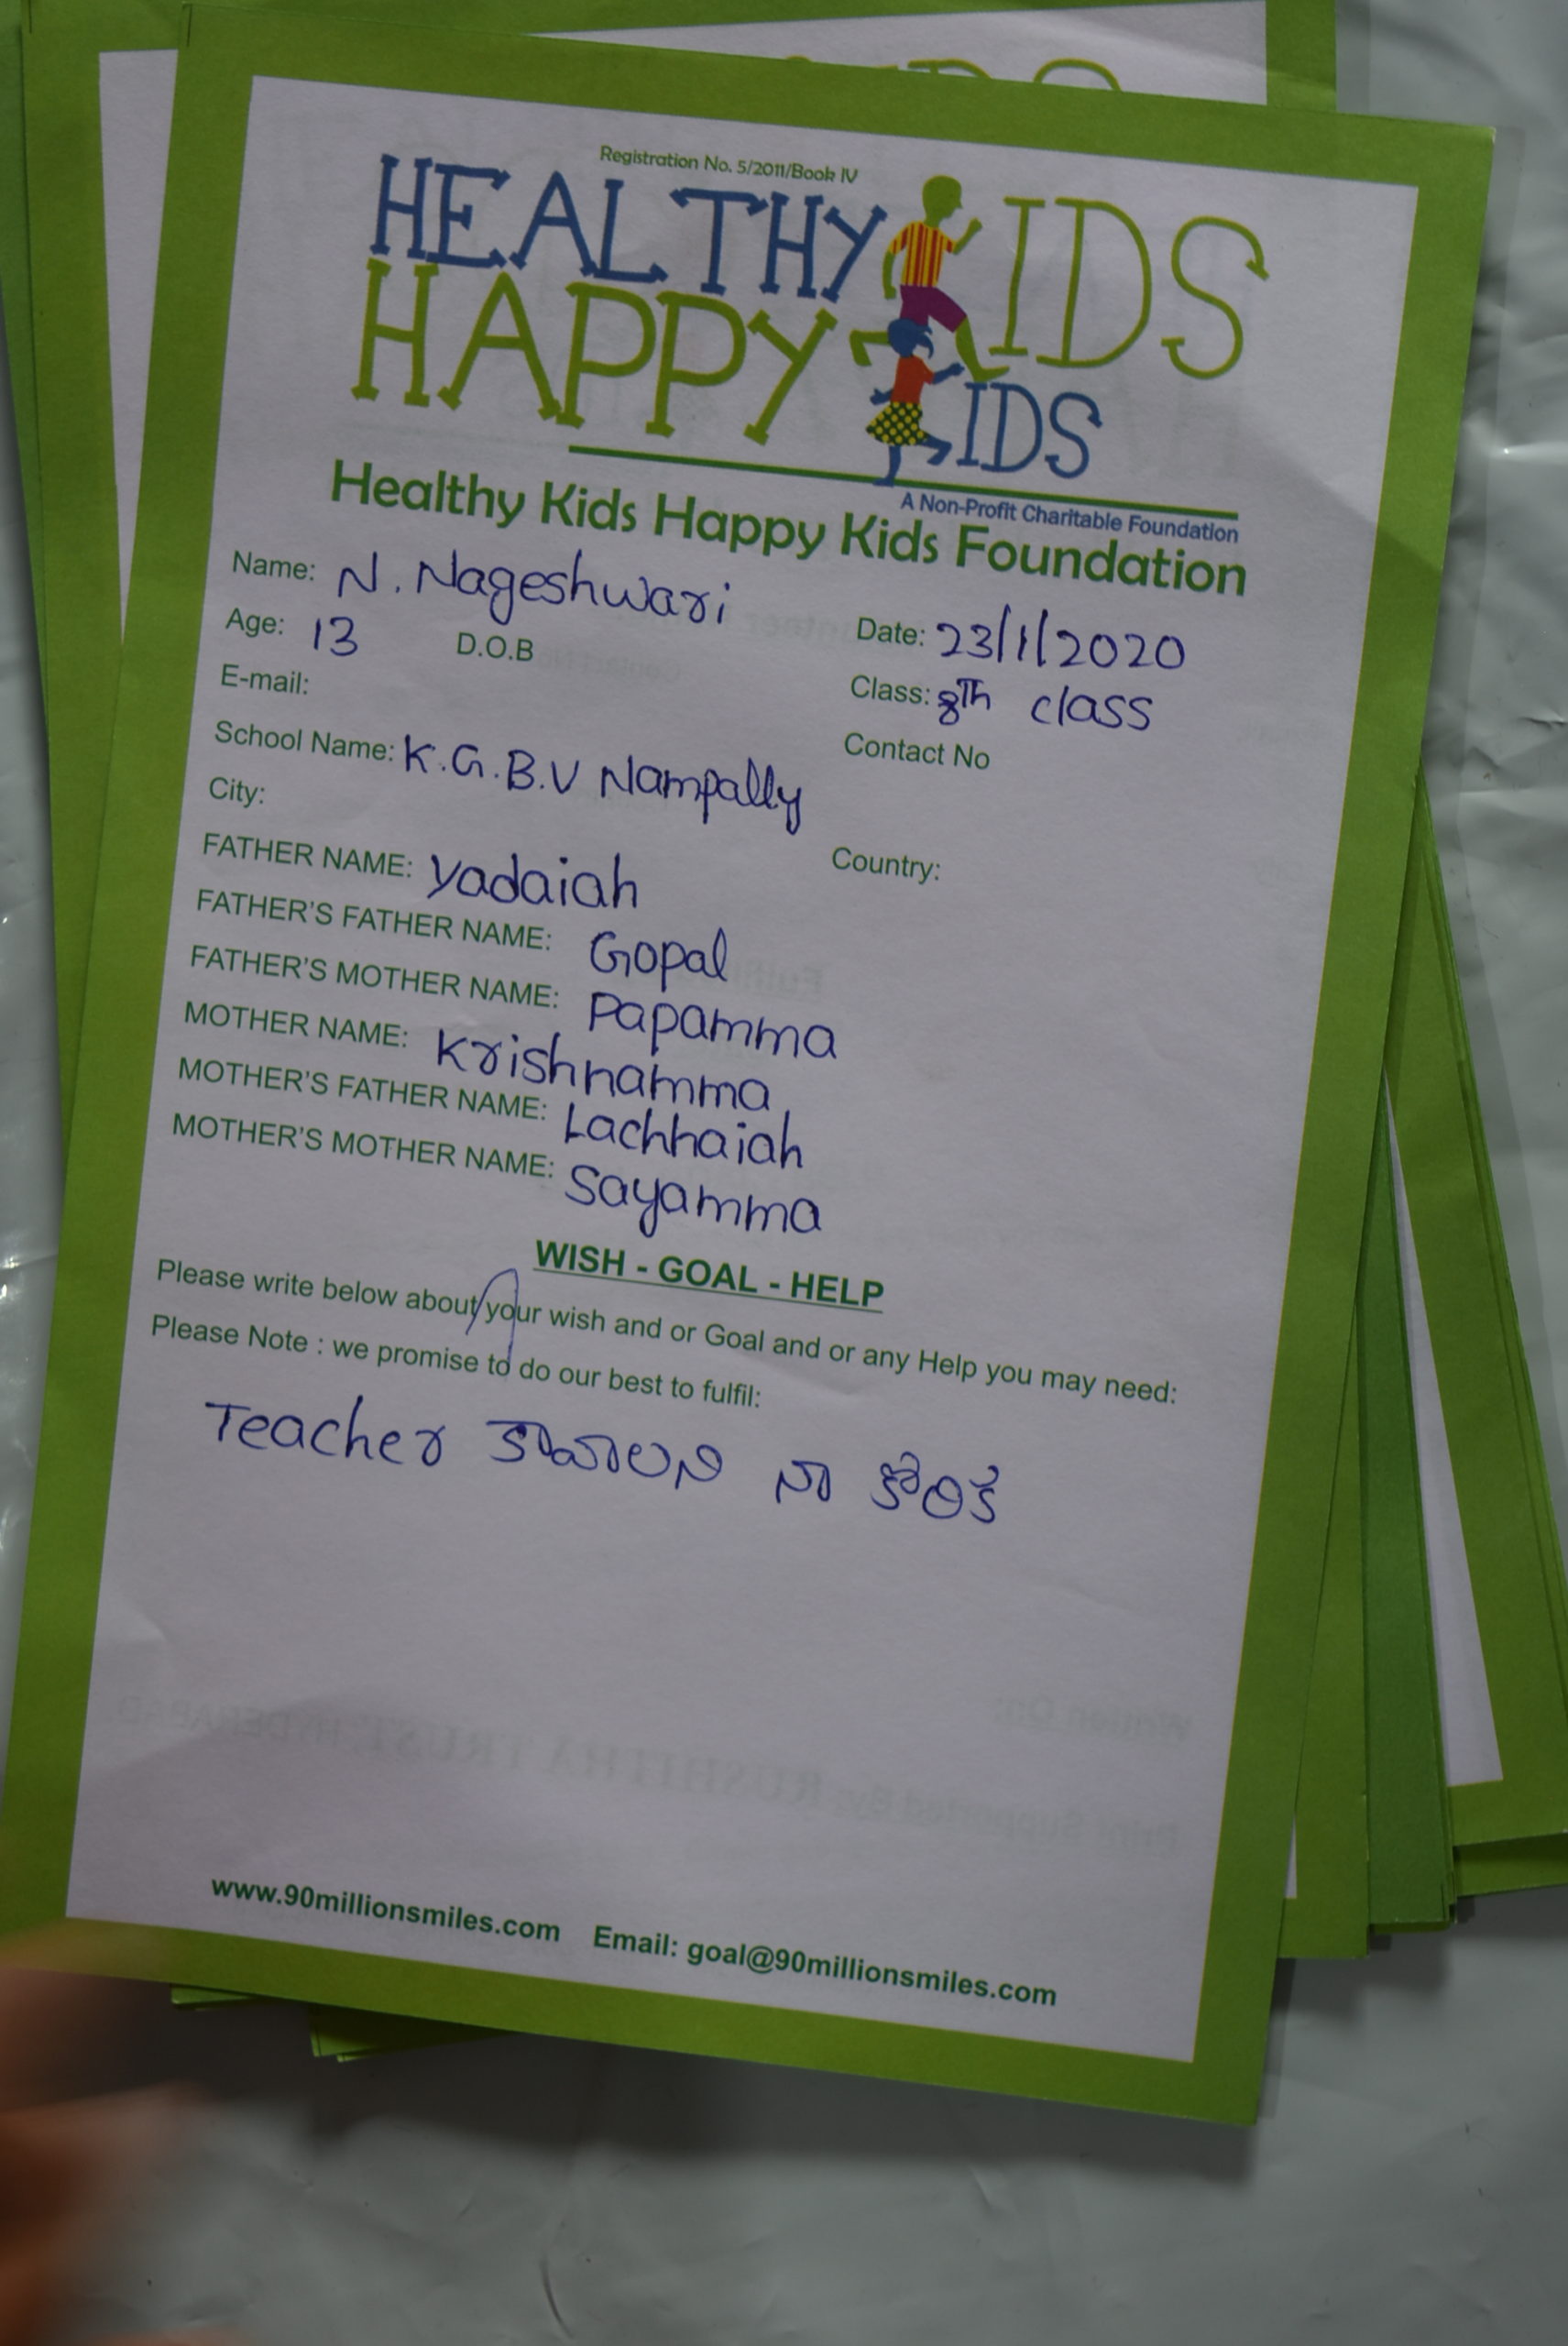 Registration No. 5/2011/Book IV
HEALTHY KIDS
HAPPY KIDS
A Non-Profit Charitable Foundation
Healthy Kids Happy Kids Foundation
Name: N. Nageshwari
Date: 23/1/2020
Age: 13 D.O.B
Class: 8Th class
E-mail:
Contact No
School Name: K.G.B.V Nampally
City:
Country:
FATHER NAME: Yadaiah
FATHER'S FATHER NAME: Gopal
FATHER'S MOTHER NAME: Papamma
MOTHER NAME: Krishnamma
MOTHER'S FATHER NAME: Lachhaiah
MOTHER'S MOTHER NAME: Sayamma
WISH - GOAL - HELP
Please write below about your wish and or Goal and or any Help you may need:
Please Note : we promise to do our best to fulfil:
Teacher కావాలని నా కోరిక
www.90millionsmiles.com Email: goal@90millionsmiles.com